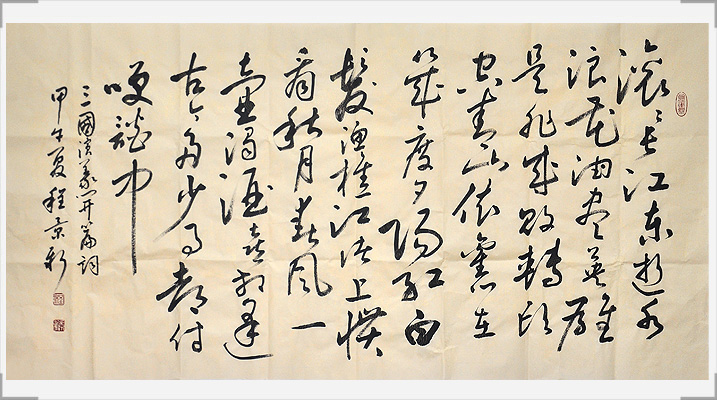 滚滚长江东逝水
浪花淘尽英雄
是非成败轉头
空青山依舊在
幾度夕陽红白
髮渔樵江渚上惯
看秋月春风一
壶浊酒喜相逢
古今多少事都付
咲談中
三國演義开篇词
甲午夏程京新